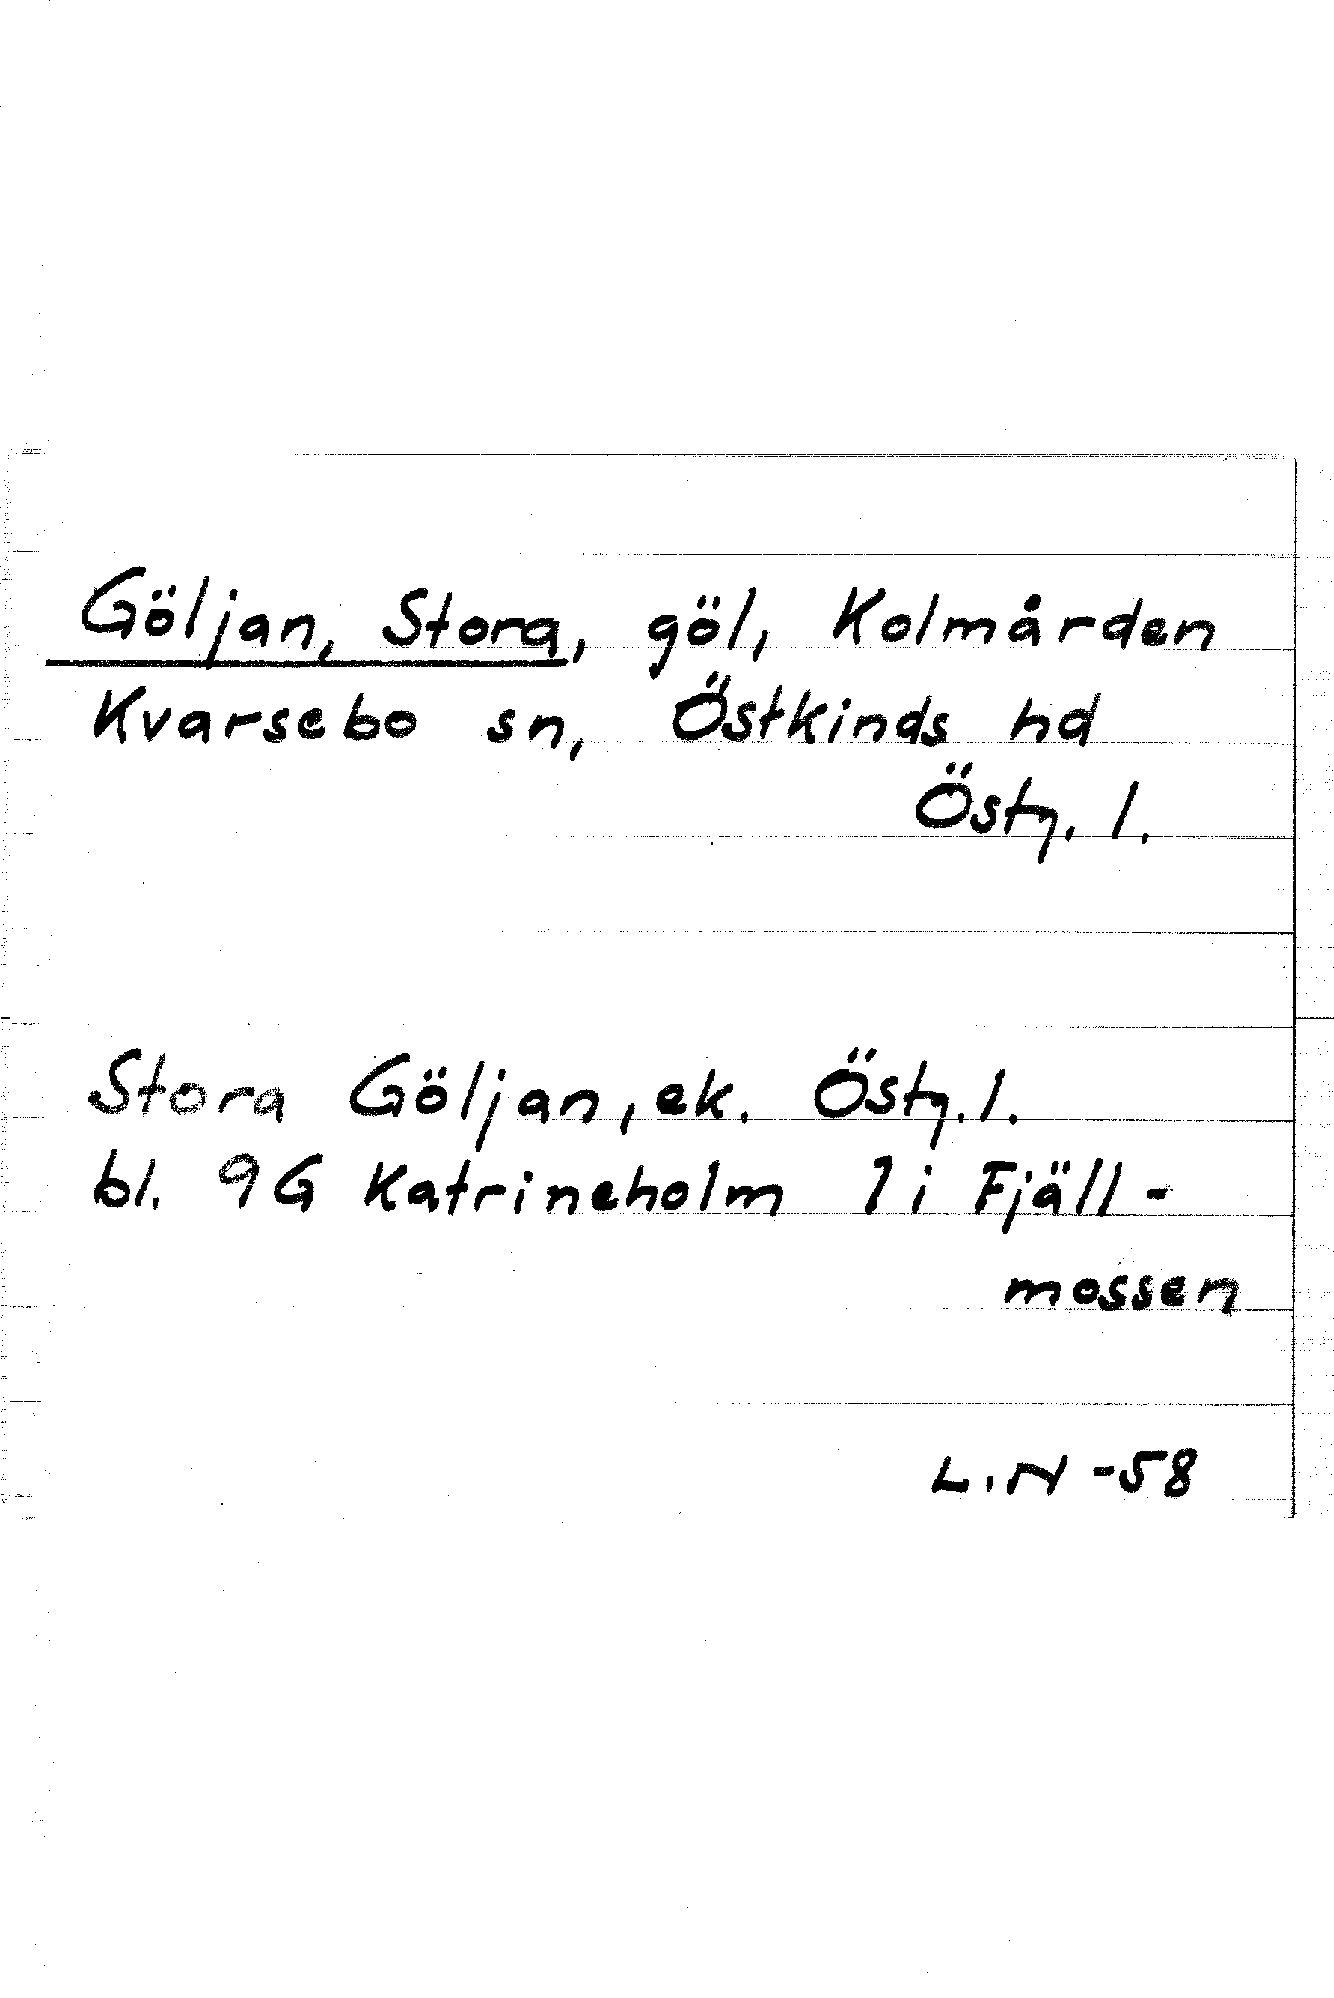 Göljan, Stora, göl, Kolmården
Kvarsebo sn, Östkinds hd
Östg. l.
Stora Göljan, ek. Östg. l.
bl. 9G Katrineholm 7 i Fjäll-
mossen
L.N -58